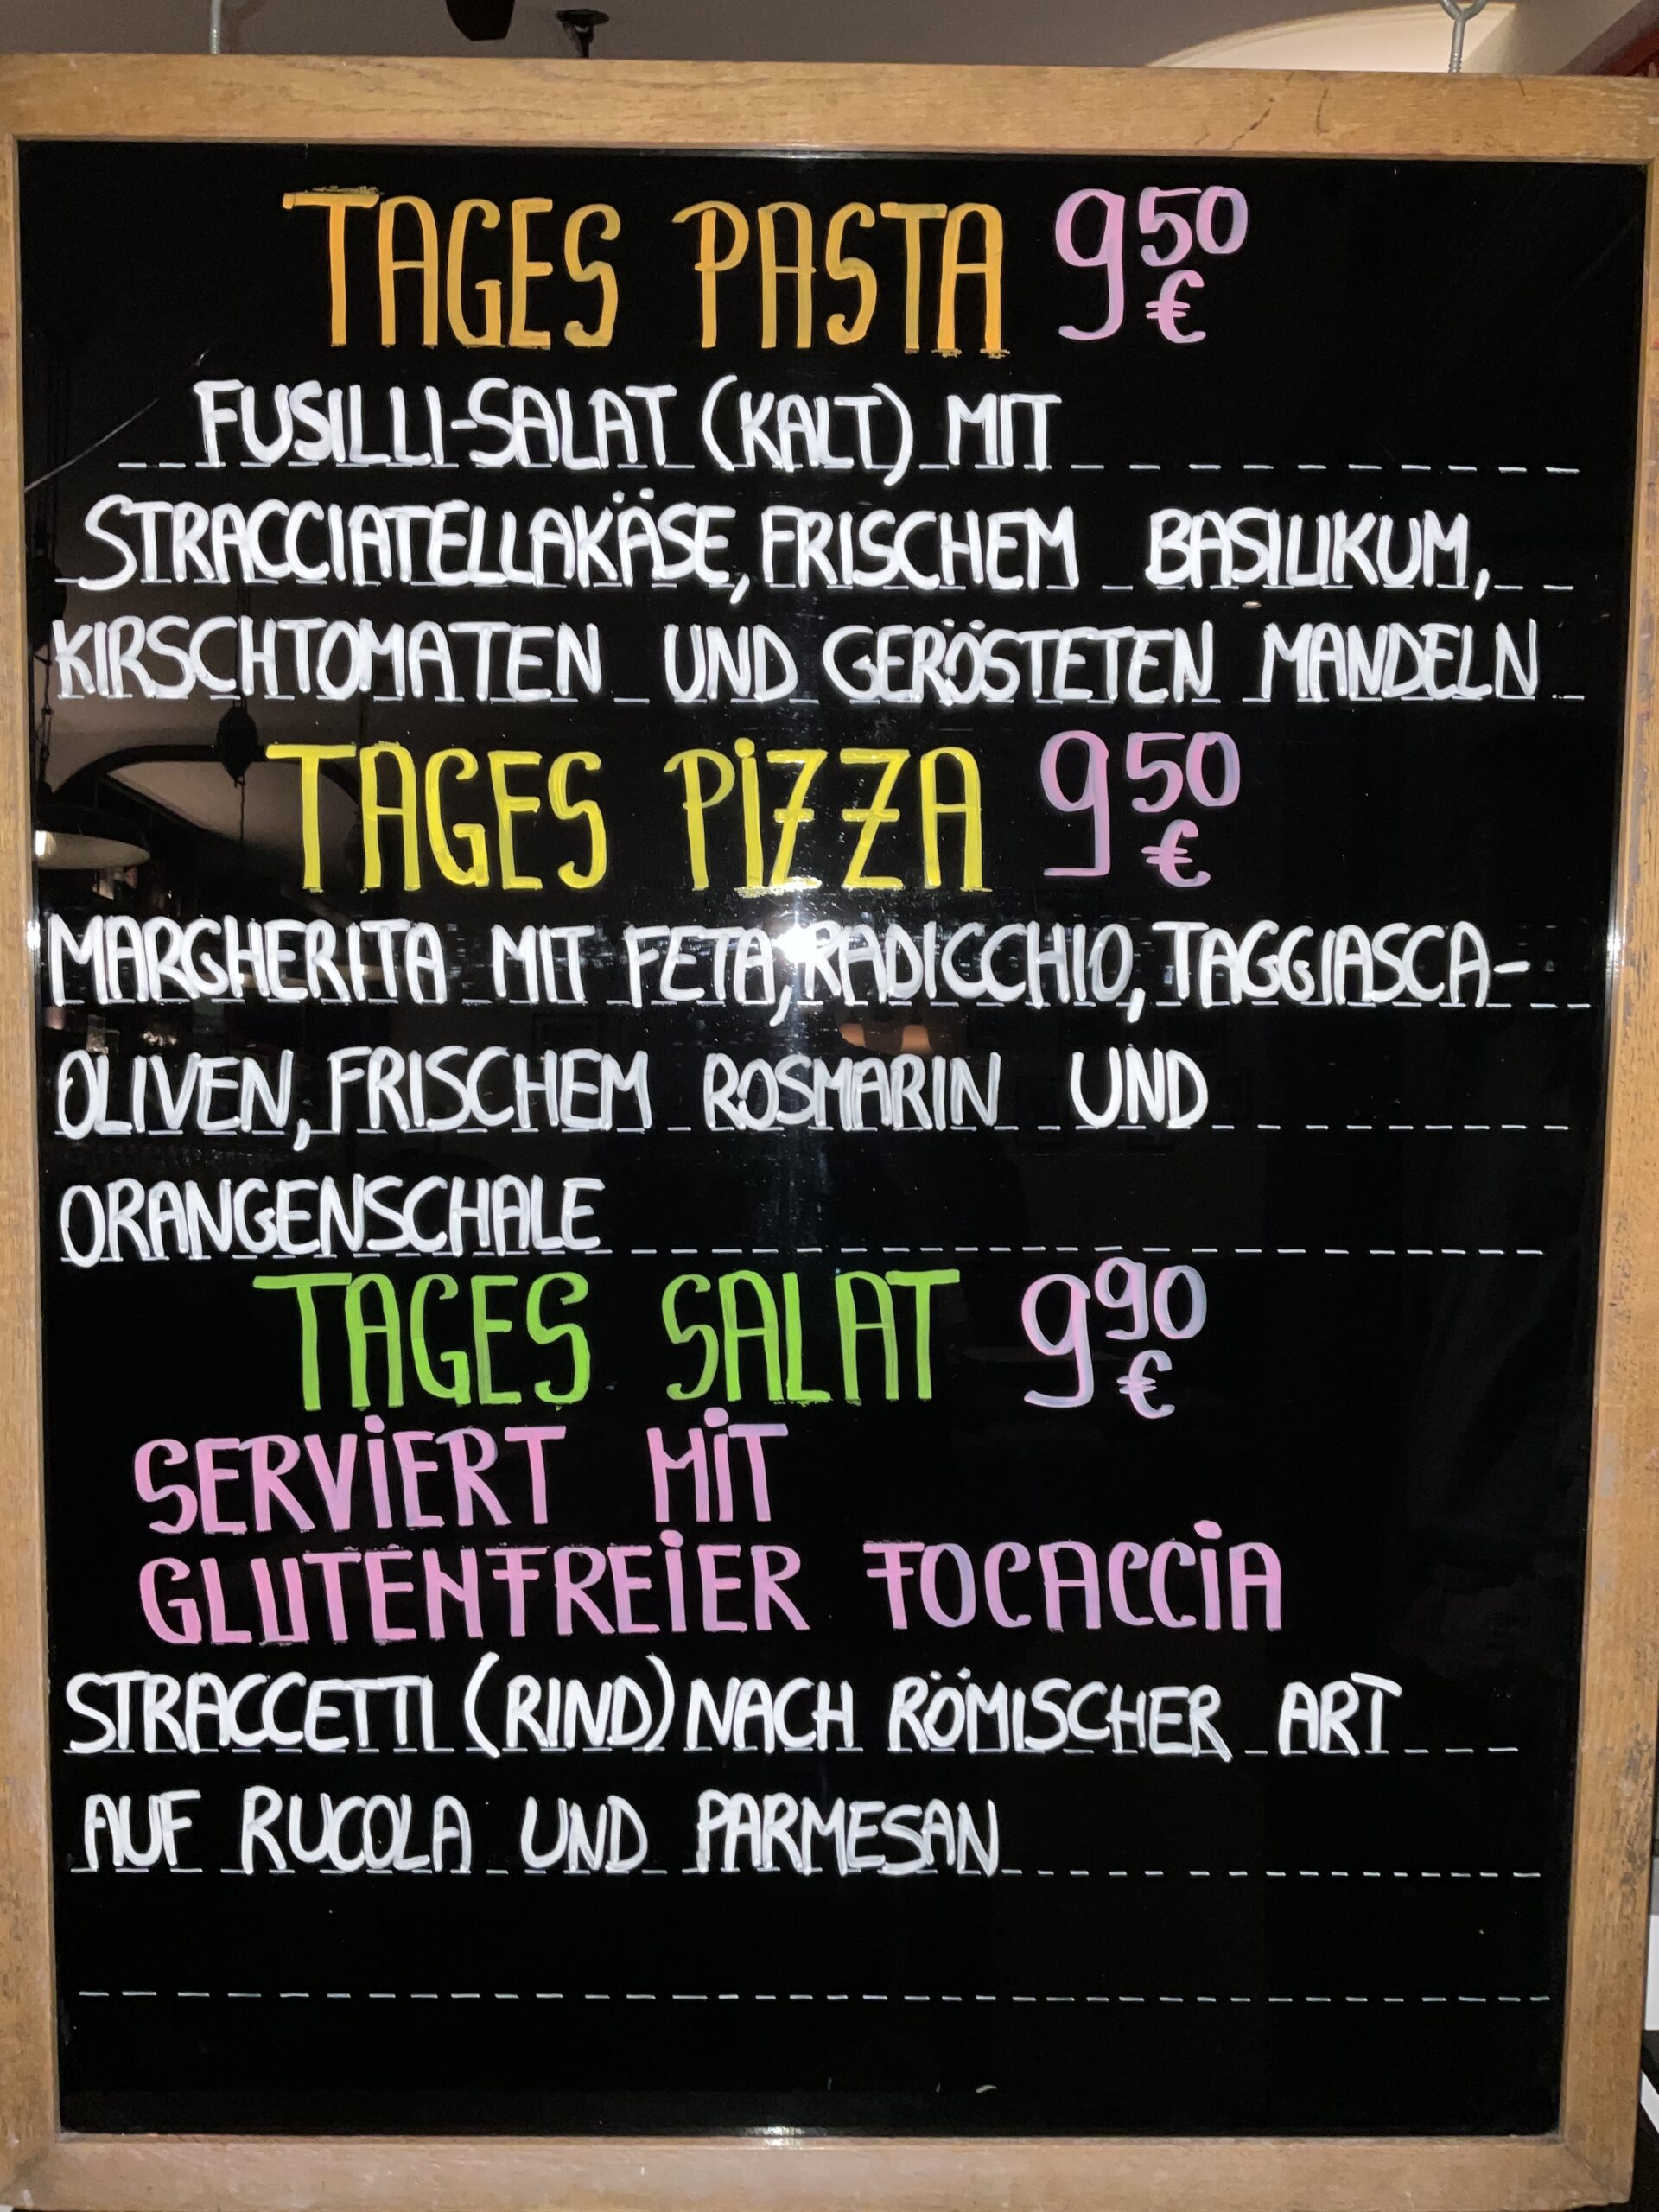 TAGES PASTA 9 50 €
FUSILLI-SALAT (KALT) MIT
STRACCIATELLAKÄSE, FRISCHEM BASILIKUM,
KIRSCHTOMATEN UND GERÖSTETEN MANDELN
TAGES PIZZA 9 50 €
MARGHERITA MIT FETA, RADICCHIO, TAGGIASCA-
OLIVEN, FRISCHEM ROSMARIN UND
ORANGENSCHALE
TAGES SALAT 9 90 €
SERVIERT MIT
GLUTENFREIER FOCACCIA
STRACCETTI (RIND) NACH RÖMISCHER ART
AUF RUCOLA UND PARMESAN